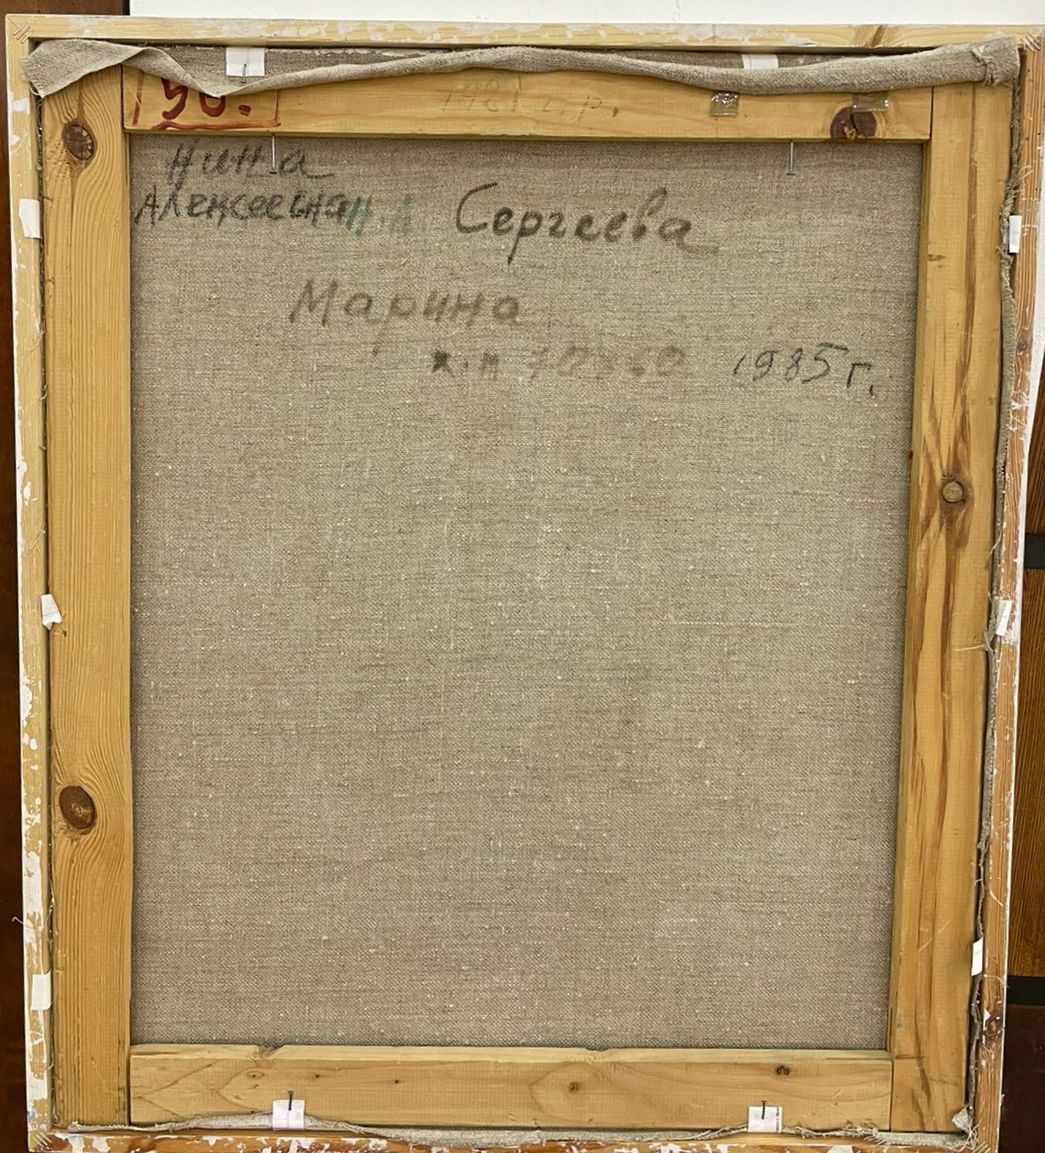 50.
Нина
Алексеевна Н.А. Сергеева
Марина
х.м 70х60 1985 г.